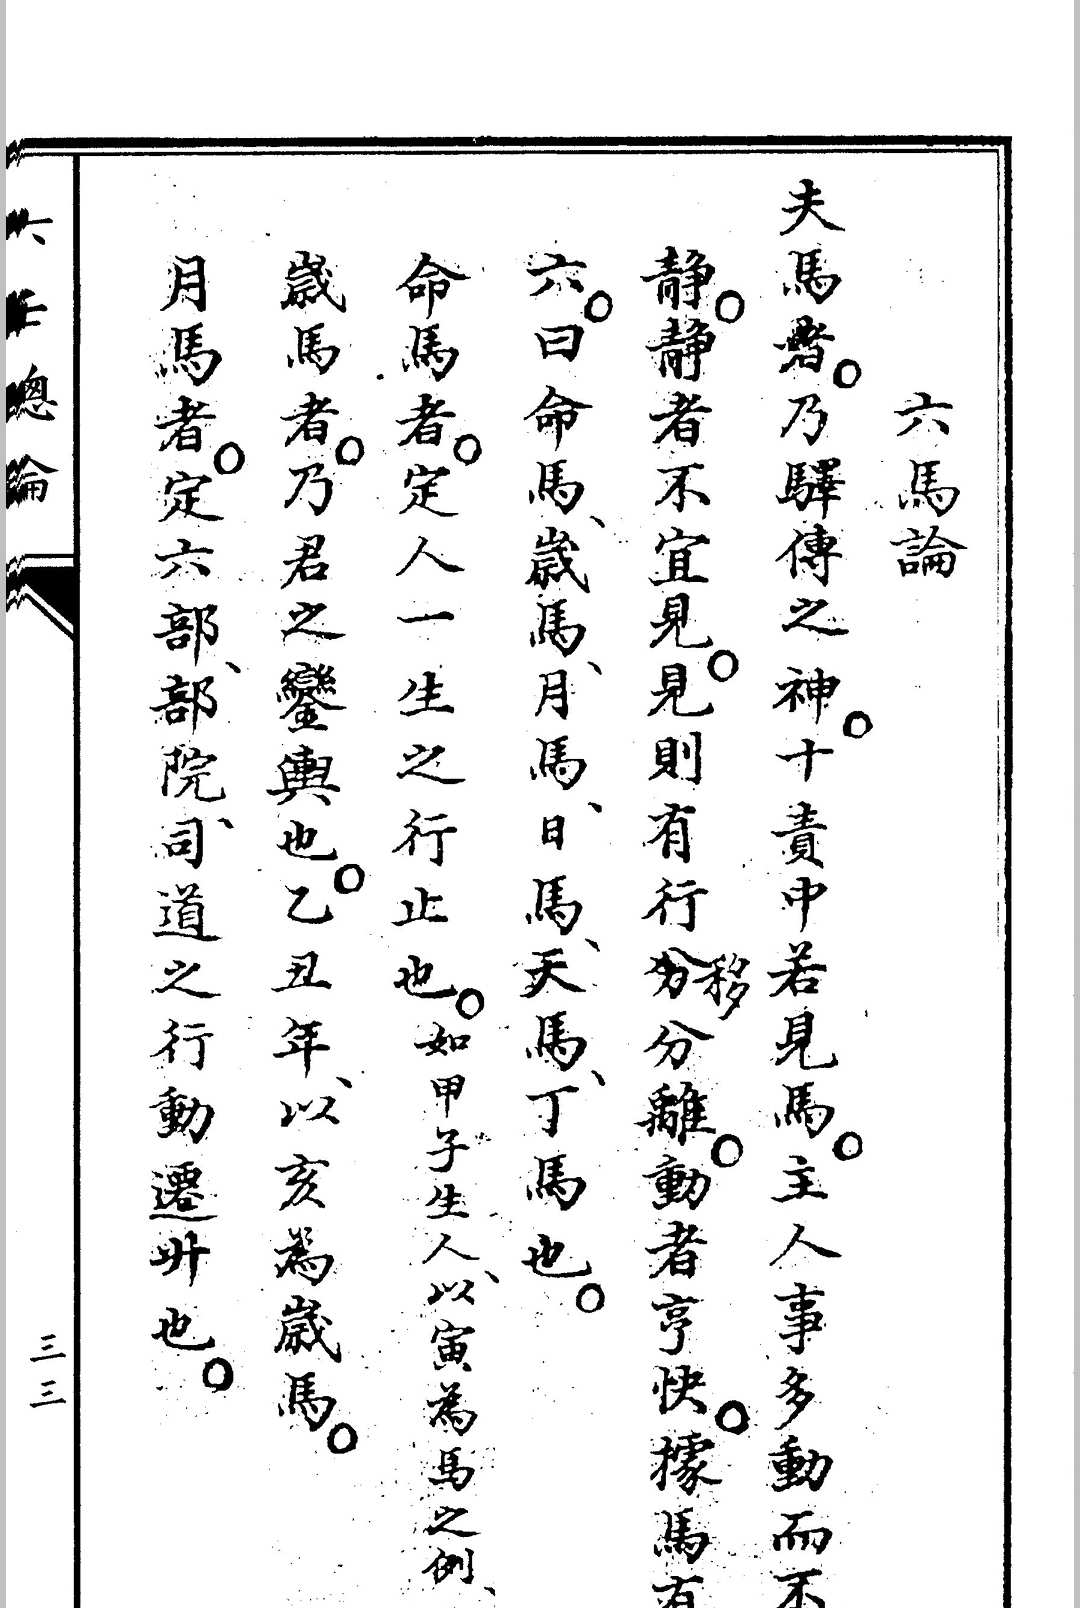 六馬論
夫馬者。乃驛傳之神。十責中若見馬。主人事多動而不
静。静者不宜見。見則有行移分離。動者亨快。據馬有
六。曰命馬、歲馬、月馬、日馬、天馬、丁馬也。
命馬者。定人一生之行止也。如甲子生人、以寅為馬之例、
歲馬者。乃君之鑾輿也。乙丑年、以亥為歲馬。
月馬者。定六部、部院、司道之行動遷卅也。
六壬總論
三三